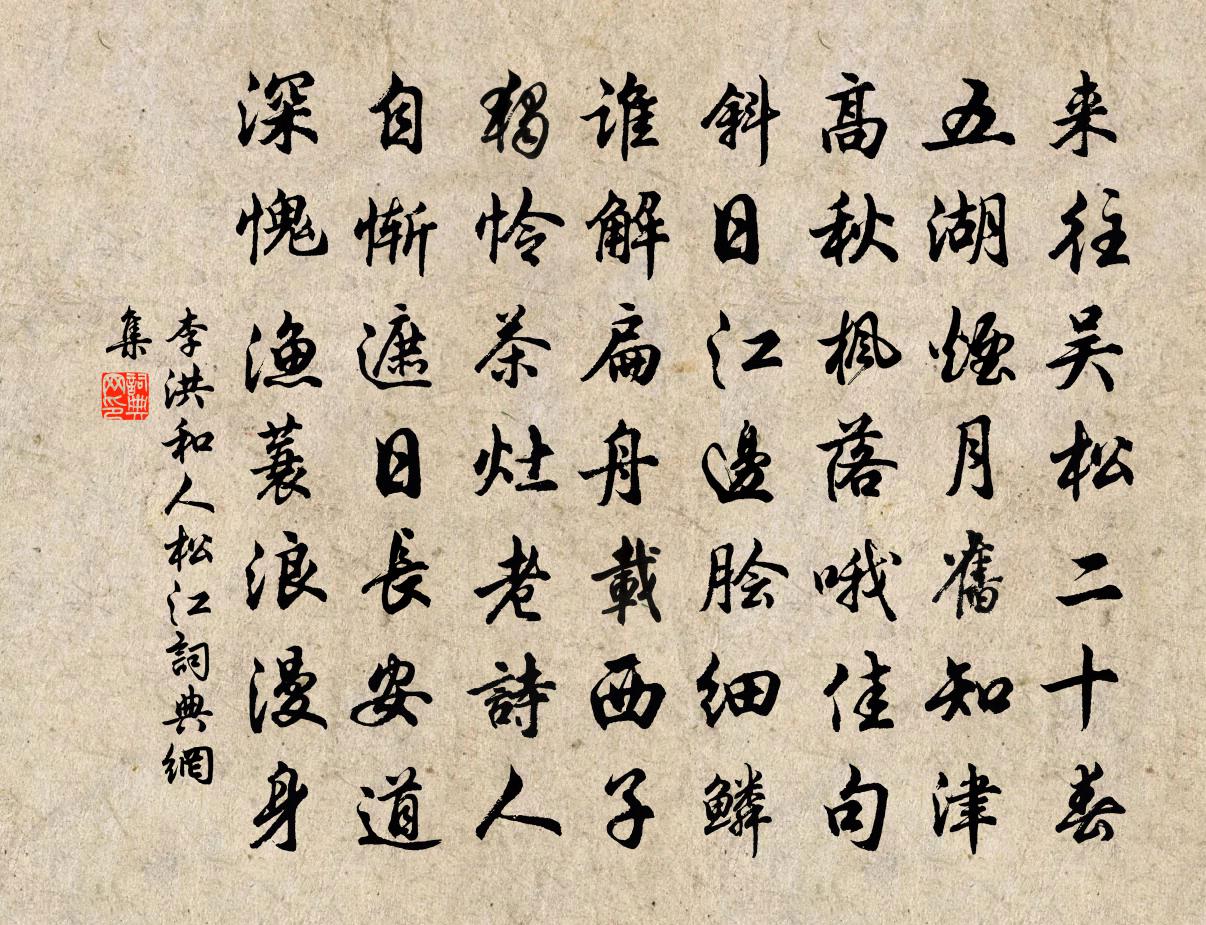 来往吴松二十春
五湖烟月舊知津
高秋楓落哦佳句
斜日江邊脍细鳞
谁解扁舟載西子
獨怜茶灶老詩人
自惭遮日長安道
深愧漁蓑浪漫身
李洪和人松江詞典網
集
詞典网印